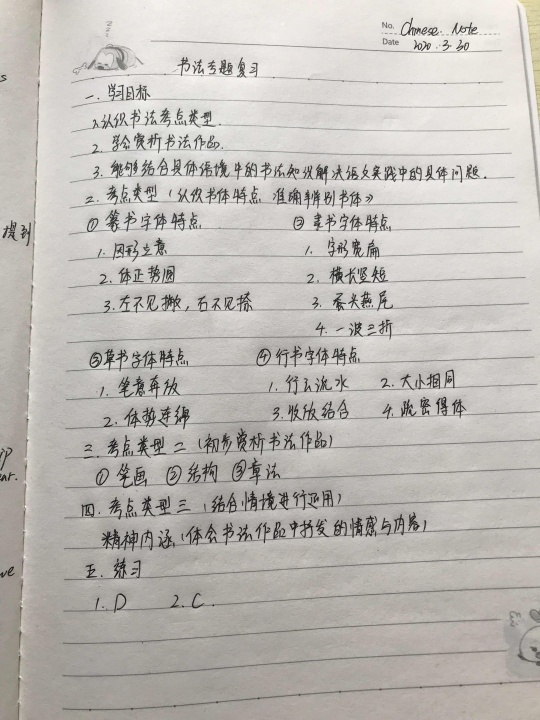 No. Chinese Note
Date 2020.3.30
书法专题复习
一.学习目标
1.认识书法考点类型.
2.学会赏析书法作品.
3.能够结合具体语境中的书法知识解决语文实践中的具体问题.
二.考点类型(认识书体特点 准确辨别书体)
①篆书字体特点 ②隶书字体特点
1.因形立意 1.字形宽扁
2.体正势圆 2.横长竖短
3.左不见撇,右不见捺 3.蚕头燕尾
4.一波三折
③草书字体特点 ④行书字体特点
1.笔意奔放 1.行云流水 2.大小相同
2.体势连绵 3.收放结合 4.疏密得体
三.考点类型二(初步赏析书法作品)
①笔画 ②结构 ③章法
四.考点类型三(结合情境进行运用)
精神内涵(体会书法作品中抒发的情感与内容)
五.练习
1.D 2.C.
提到